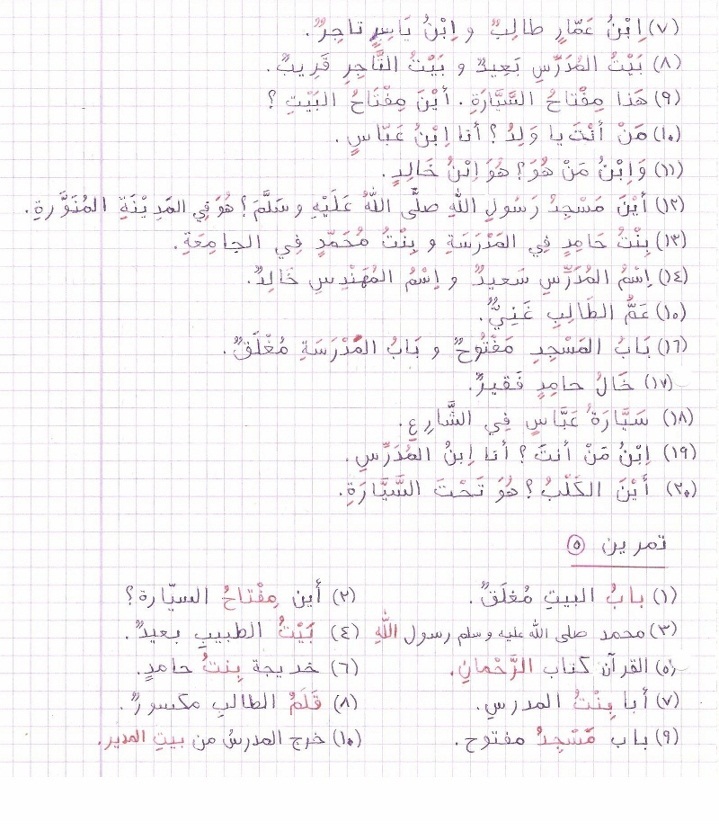 (٧) اِبْنُ عَمَّارٍ طالِبٌ و اِبْنُ يَاسِرٍ تاجِرٌ.
(٨) بَيْتُ المُدَرِّسِ بَعِيدٌ و بَيْتُ التَّاجِرِ قَرِيبٌ.
(٩) هَذا مِفْتاحُ السَّيَّارَةِ. أيْنَ مِفْتَاحُ البَيْتِ ؟
(١٠) مَنْ أنْتَ يا وَلِدُ ؟ أنا اِبْنُ عَبّاسٍ.
(١١) وَاِبْنُ مَنْ هُوَ ؟ هُوَ اِبْنُ خَالِدٍ.
(١٢) أيْنَ مَسْجِدُ رَسُولِ اللهِ صلَّى اللهُ عَلَيْهِ و سَلَّمَ ؟ هُوَ فِي المَدِيْنَةِ المُنَوَّرةِ.
(١٣) بِنْتُ حَامِدٍ فِي المَدْرَسَةِ و بِنْتُ مُحَمَّدٍ فِي الجامِعَةِ.
(١٤) اِسْمُ المُدَرِّسِ سَعيدٌ و اِسْمُ المُهَنْدِسِ خَالِدٌ.
(١٥) عَمُّ الطَالِبِ غَنِيٌّ.
(١٦) بَابُ المَسْجِدِ مَفْتُوحٌ و بَابُ المَدْرَسَةِ مُغْلَقٌ.
(١٧) خَالُ حامِدٍ فَقيرٌ.
(١٨) سَيَّارَةُ عَبَّاسٍ فِي الشَّارِعِ.
(١٩) اِبْنُ مَنْ أنتَ ؟ أنا اِبنُ المُدَرِّسِ.
(٢٠) أيْنَ الكَلْبُ ؟ هُوَ تَحْتَ السَّيَّارَةِ.
تمرين ٥
(١) بابُ البيتِ مُغلَقٌ. (٢) أين مِفْتاحُ السيّارة ؟
(٣) محمد صلى الله عليه وسلم رسول اللهِ (٤) بَيْتُ الطبيبِ بعيدٌ.
(٥) القرآن كتاب الرَّحْمانِ. (٦) خديجة بِنتُ حامدٍ.
(٧) أبا بِنْتُ المدرسِ. (٨) قَلَمُ الطالبِ مكسورٌ.
(٩) باب مَسْجِدُ مفتوح. (١٠) خرج المدرسُ من بيتِ المدير.